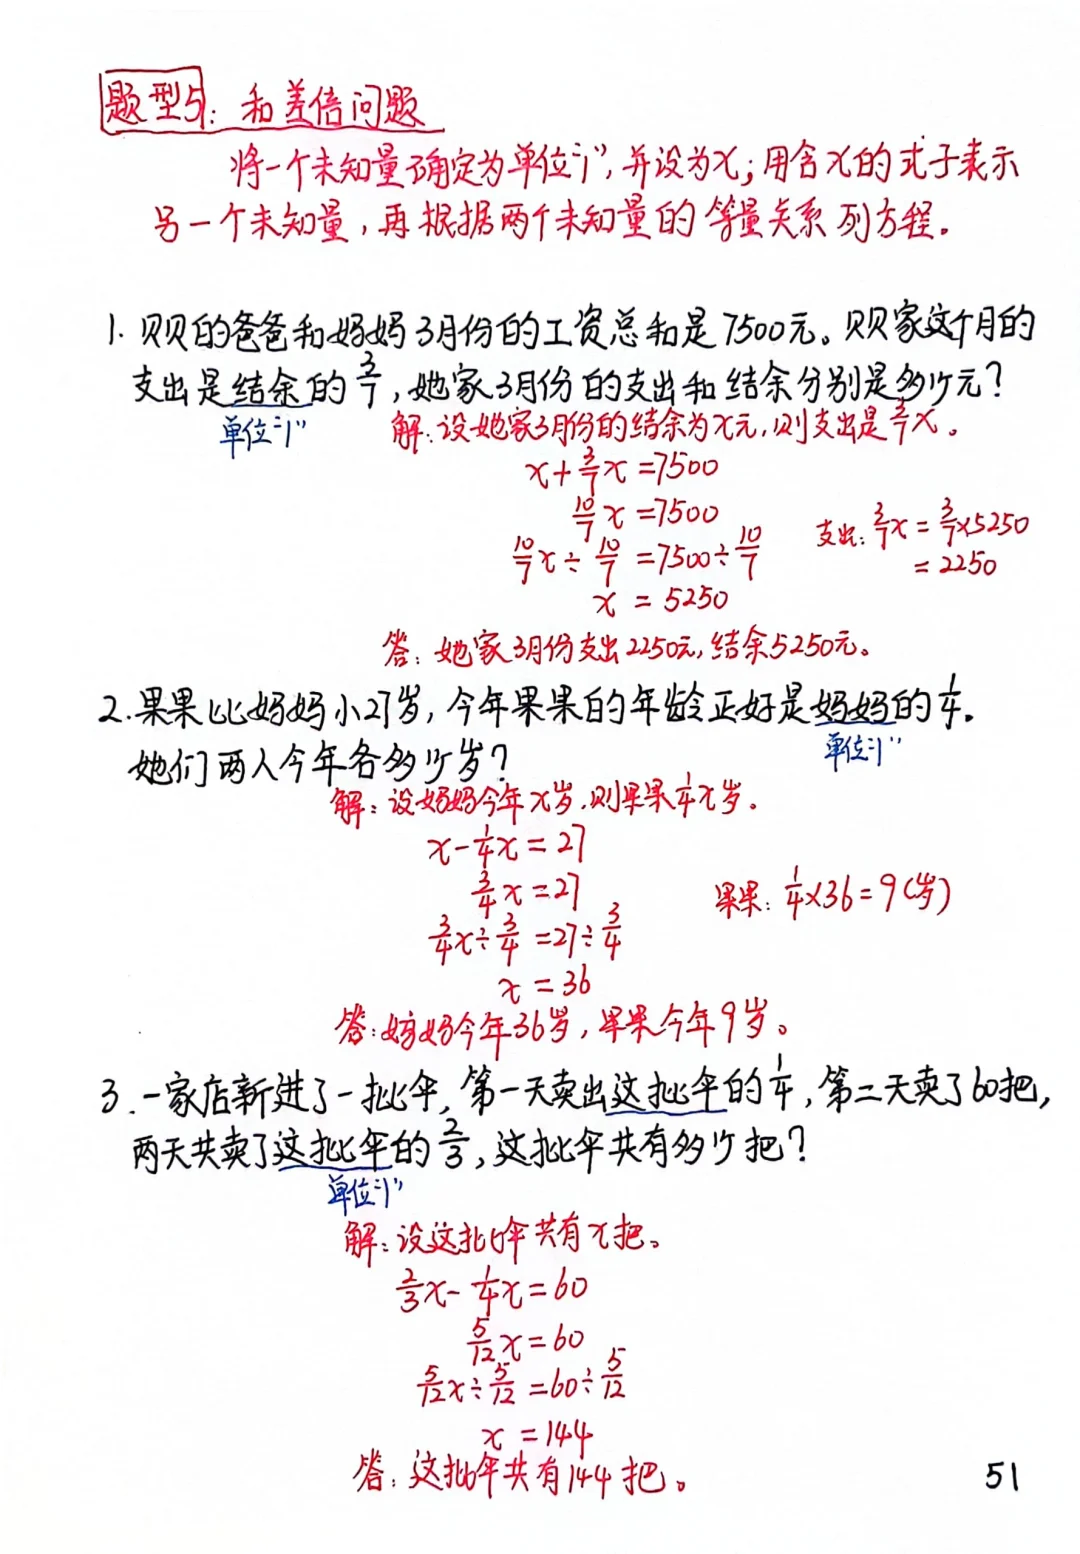 题型5：和差倍问题
将一个未知量确定为单位"1"，并设为x；用含x的式子表示
另一个未知量，再根据两个未知量的等量关系列方程。
1. 贝贝的爸爸和妈妈3月份的工资总和是7500元。贝贝家这个月的
支出是结余的3/7，她家3月份的支出和结余分别是多少元？
单位"1"
解：设她家3月份的结余为x元，则支出是3/7x。
x+3/7x=7500
10/7x=7500
10/7x÷10/7=7500÷10/7
x=5250
支出：3/7x=3/7×5250
=2250
答：她家3月份支出2250元，结余5250元。
2. 果果比妈妈小27岁，今年果果的年龄正好是妈妈的1/4。
单位"1"
她们两人今年各多少岁？
解：设妈妈今年x岁，则果果1/4x岁。
x-1/4x=27
3/4x=27
3/4x÷3/4=27÷3/4
x=36
果果：1/4×36=9（岁）
答：妈妈今年36岁，果果今年9岁。
3. 一家店新进了一批伞，第一天卖出这批伞的1/4，第二天卖了60把，
两天共卖了这批伞的2/3，这批伞共有多少把？
单位"1"
解：设这批伞共有x把。
2/3x-1/4x=60
5/12x=60
5/12x÷5/12=60÷5/12
x=144
答：这批伞共有144把。
51